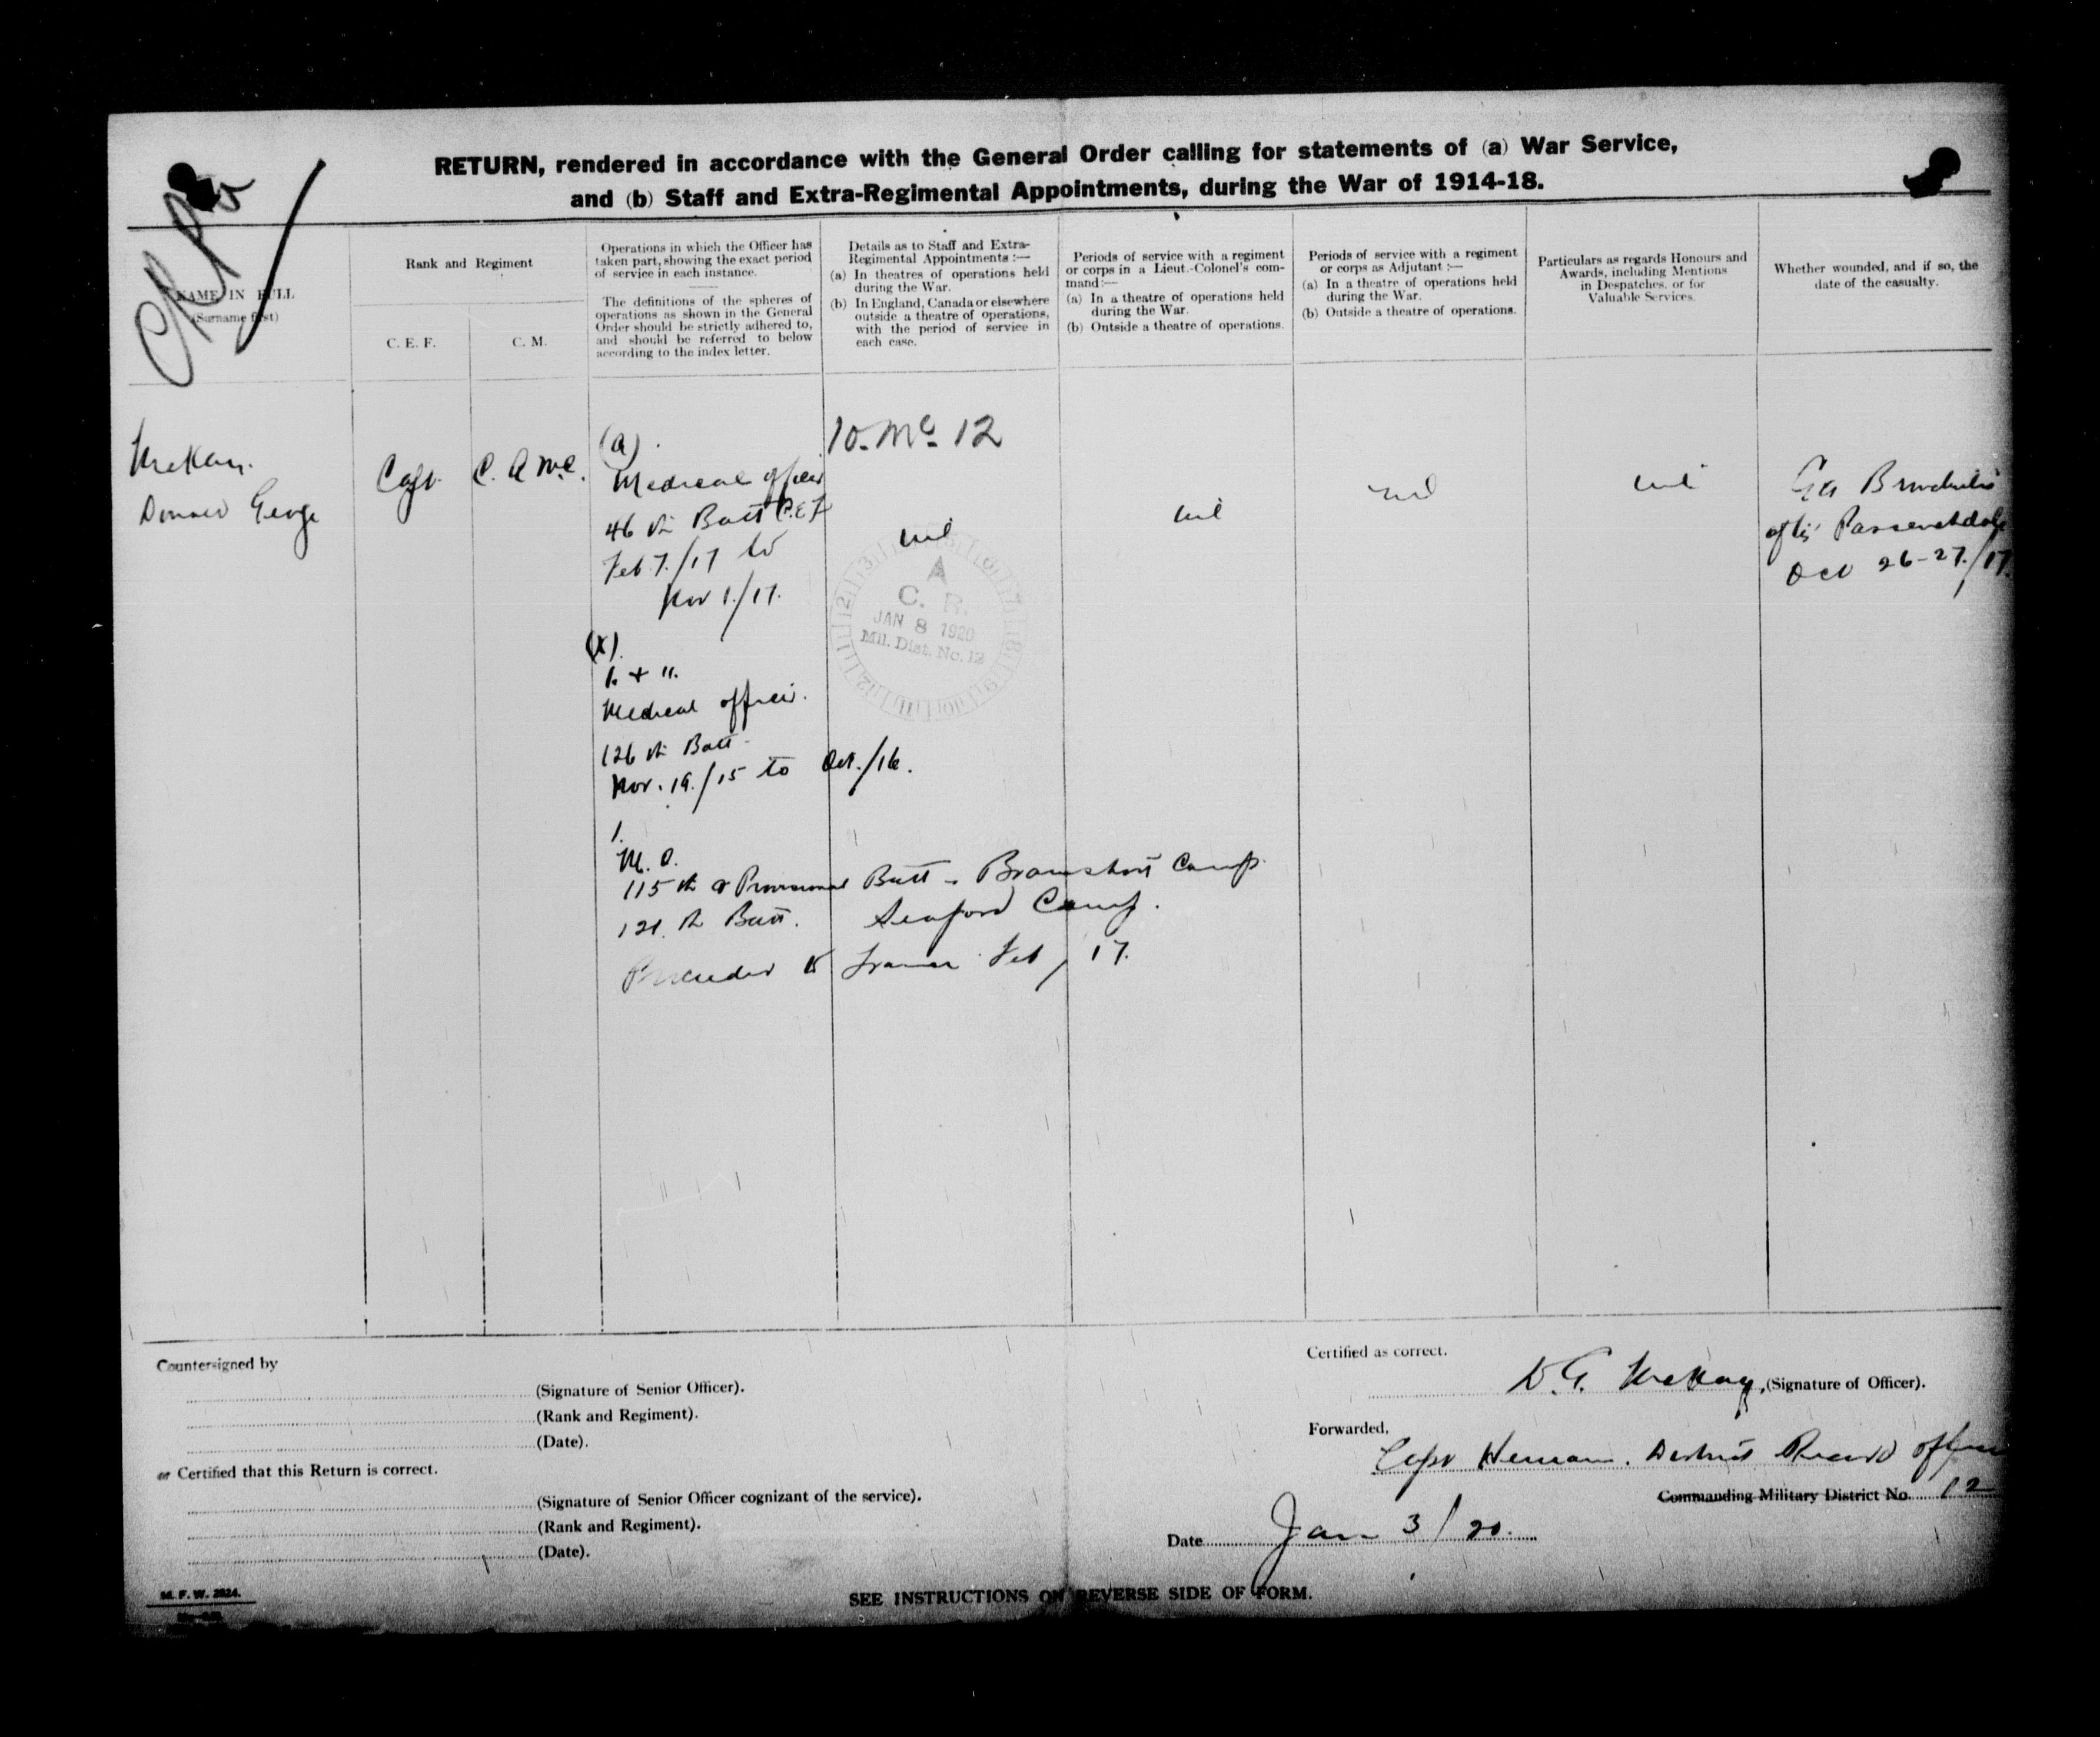 RETURN, rendered in accordance with the General Order calling for statements of (a) War Service,
and (b) Staff and Extra-Regimental Appointments, during the War of 1914-18.
NAME IN FULL
(Surname first)
Rank and Regiment
C. E. F.
C. M.
Operations in which the Officer has
taken part, showing the exact period
of service in each instance.
The definitions of the spheres of
operations as shown in the General
Order should be strictly adhered to,
and should be referred to below
according to the index letter.
Details as to Staff and Extra-
Regimental Appointments :—
(a) In theatres of operations held
during the War.
(b) In England, Canada or elsewhere
outside a theatre of operations,
with the period of service in
each case.
Periods of service with a regiment
or corps in a Lieut.-Colonel's com-
mand :—
(a) In a theatre of operations held
during the War.
(b) Outside a theatre of operations.
Periods of service with a regiment
or corps as Adjutant :—
(a) In a theatre of operations held
during the War.
(b) Outside a theatre of operations.
Particulars as regards Honours and
Awards, including Mentions
in Despatches, or for
Valuable Services.
Whether wounded, and if so, the
date of the casualty.
McKay.
Donald George
Capt.
C. A M C.
(a).
Medical officer
46 th Batt C.E.F
Feb 7./17 to
Nov 1./17.
10. Mc. 12
nil
nil
nil
nil
Gas Bronchitis
after Passchendale
Oct 26-27./17.
A
C. R.
JAN 8 1920
Mil. Dist. No. 12
1. + 11.
Medical officer.
126 th Batt
Nov. 19./15 to Oct./16.
1.
M. O.
115 th & Provisional Batt - Bramshott Camp.
121. th Batt. Seaford Camp.
Proceeded to France Feb / 17.
Countersigned by
(Signature of Senior Officer).
(Rank and Regiment).
(Date).
or Certified that this Return is correct.
(Signature of Senior Officer cognizant of the service).
(Rank and Regiment).
(Date).
Certified as correct.
D. G. McKay, (Signature of Officer).
Forwarded,
Capt District Record officer
Commanding Military District No. 12
Date Jan 3 / 20.
M. F. W. 2624.
SEE INSTRUCTIONS ON REVERSE SIDE OF FORM.